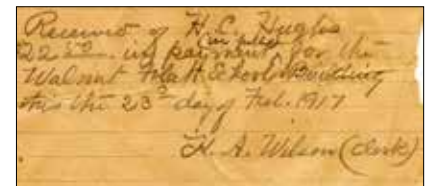 Received of H.C. Hughs
22 50 in payment (in full) for the
Walnut Flatt School Building
this the 23rd day of Feb. 1917
H. A. Wilson (clerk)